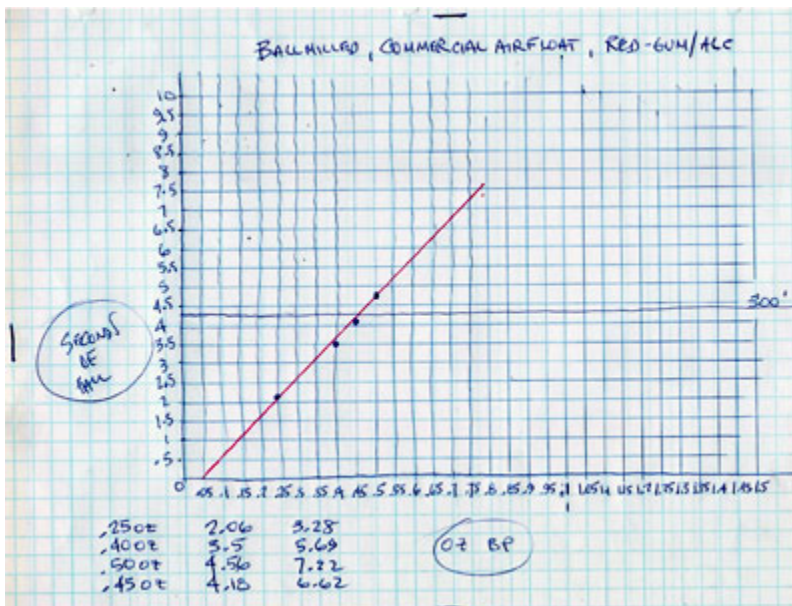 BALLMILLED, COMMERCIAL AIRFLOAT, RED-GUM/ALC
10
9.5
9
8.5
8
7.5
7
6.5
6
5.5
5
4.5
4
3.5
3
2.5
2
1.5
1
.5
300'
SECONDS
OF
0 .05 .1 .15 .2 .25 .3 .35 .4 .45 .5 .55 .6 .65 .7 .75 .8 .85 .9 .95 1 1.05 1.1 1.15 1.2 1.25 1.3 1.35 1.4 1.45 1.5
.25oz 2.06 3.28
.40oz 3.5 5.69
.50oz 4.56 7.22
.45oz 4.18 6.62
OZ BP